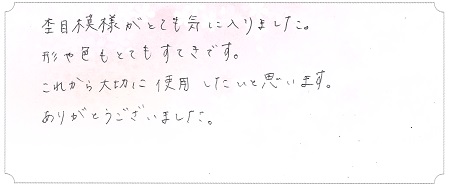 杢目模様がとても気に入りました。
形や色もとてもすてきです。
これから大切に使用したいと思います。
ありがとうございました。